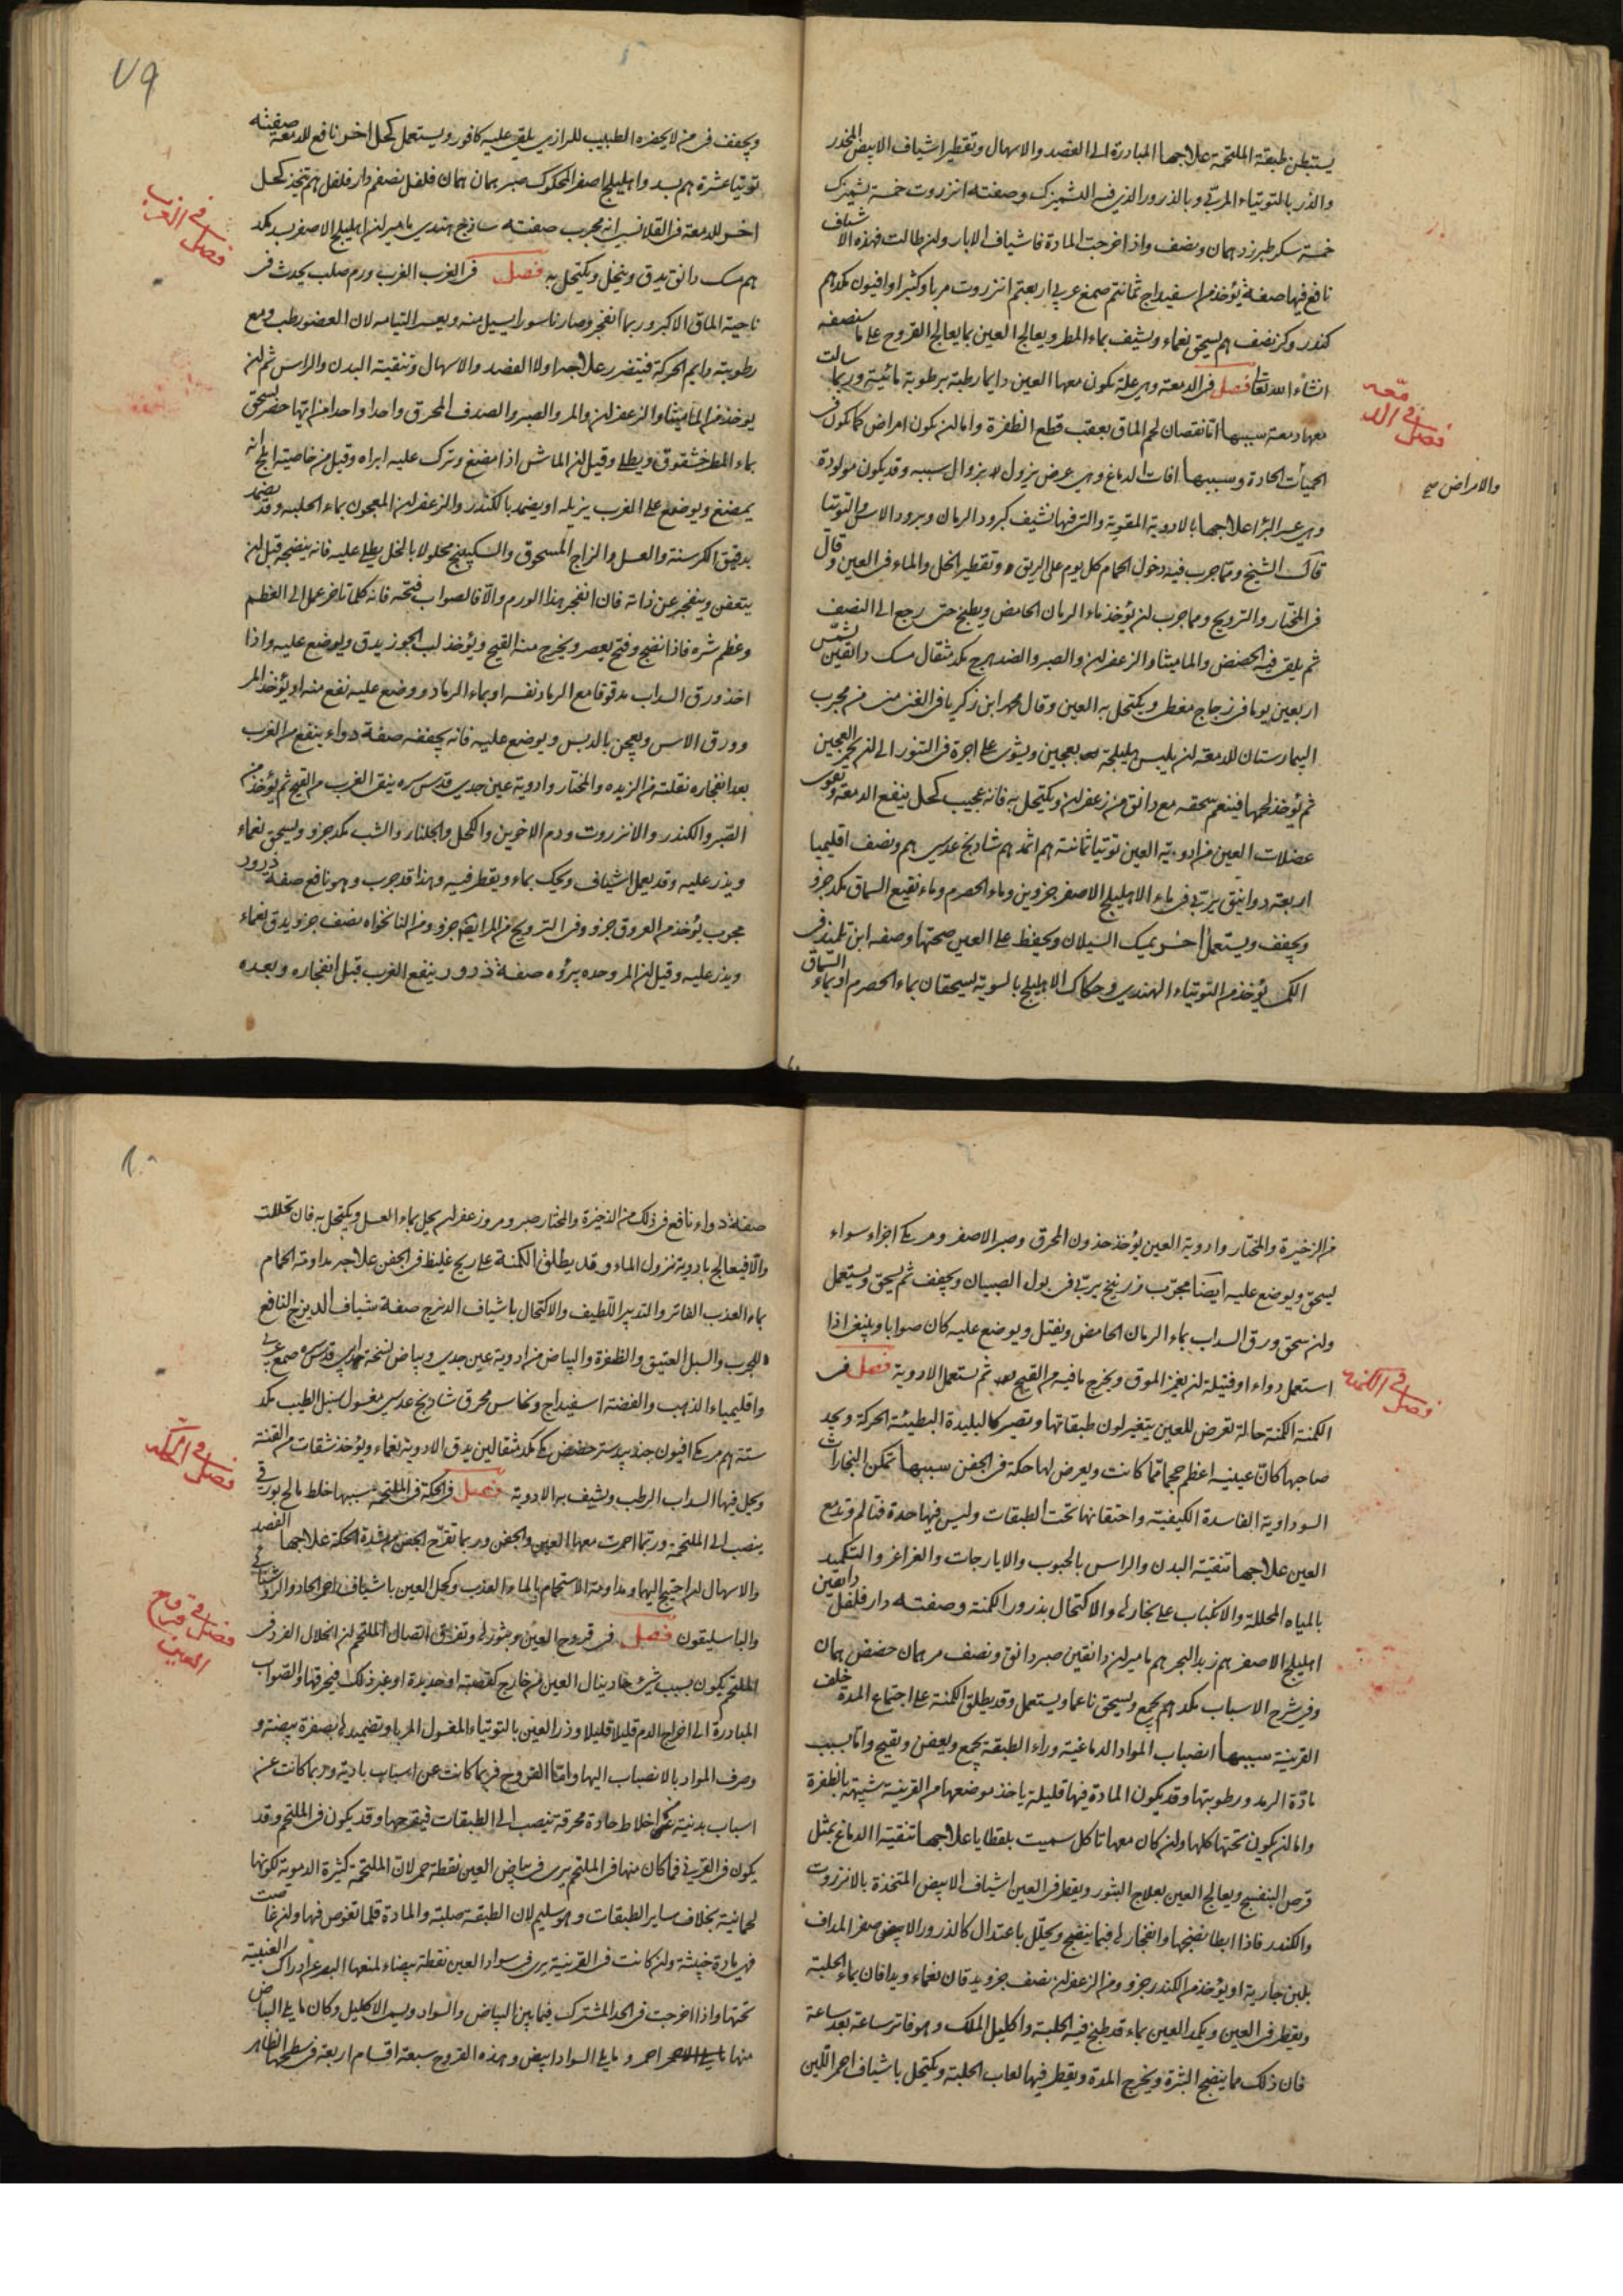 يستبطن طبقته الملتحمة علاجها المبادرة الى الفصد والاسهال وتقطير اشياف الابيض المخدر
والذر بالتوتياء المربى وبالذرور الذى فيه الشميزك وصفته انزروت خمسة شميزك
خمسة سكر طبرزد همان ونصف واذا خرجت المادة فاشياف الابار ولن طالت فهذه الاشياف
نافع فيها صفة يؤخذ من اسفيداج ثمانية صمغ عربى اربعة انزروت مربا وكثيرا وافيون مكدهم
كندر وكر نصف هم يسحق نعماء ويشيف بماء المطر ويعالج العين بما يعالج القروح على ما سنصفه
انشاء الله تعا فصل فى الدمعة وهى علة تكون معها العين دايما رطبة برطوبة مائية وربما سالت
معها دمعة سببها اما نقصان لحم الماق بعقب قطع الظفرة واما لن يكون امراض كما يكون فى
الحميات الحادة وسببها افات الدماغ وهى عرض يزول بزوال سببه وقد يكون مولودة
وهى عسر البرؤ علاجها بالادوية المقوية والتى فيها تشيف كبرود الرمان وبرود الاس والتوتيا
قال الشيخ ومما جرب فيه دخول الحمام كل يوم على الريق وتقطير الخل والماء فى العين وقال
فى المختار والترويح ومما جرب لن يؤخذ ماء الرمان الحامض ويطبخ حتى رجع الى النصف
ثم يلقى فيه الحضض والماميثا والزعفران والصبر والضد هرج مكد مثقال مسك دانقين يشمس
اربعين يوما فى زجاج مغطى ويكتحل به العين وقال محمد ابن زكريا فى الفن من مجرب
البيمارستان للدمعة لن يلبس هليلجة بعجين ويشوى على اجرة فى التنور الى لن يحمر العجين
ثم يؤخذ لحمها فينعم سحقه مع دانق من زعفران ويكتحل به فانه عجيب كحل ينفع الدمعة ويقوى
عضلات العين من ادوية العين توتيا ثمانية هم اثمد هم شاذنج عدسى هم ونصف اقليميا
اربعة دوانيق يربى فى ماء الاهليلج الاصفر جزوين وماء الحصرم وماء نقيع السماق مكد جزو
ويجفف ويستعمل اخر يمسك السيلان ويحفظ على العين صحتها وصفه ابن تلميذ فى
الكـ يؤخذ من التوتياء الهندى وحكاك الاهليلج بالسوية يسحقان بماء الحصرم او بماء السماق
فصل فى الدمعه
والامراض صح
٧٩
ويجفف فى من لا يحضره الطبيب للرازى يلقى عليه كافور ويستعمل كحل اخر نافع للدمعة صفته
توتيا عشرة هم بسد واهليلج اصفر المحكوك صبر همان همان فلفل نصف هم دار فلفل هم يتخذ كحل
اخر للدمعة فى القلانسى انه مجرب صفته ساذج هندى ماميران اهليلج الاصفر بسد مكد
هم مسك دانق يدق وينخل ويكتحل به فصل فى الغرب الغرب ورم صلب يحدث فى
ناحية الماق الاكبر وربما انفجر وصار ناسورا يسيل منه ويعسر التيامه لان العضو رطب ومع
رطوبته دايم الحركة فيتضرر علاجه اولا الفصد والاسهال وتنقية البدن والراس ثم لن
يوخذ من الماميثا والزعفران والمر والصبر والصدف المحرق واحدا واحدا من ايها حضر يسحق
بماء المطر خشقوق ويطلى وقيل لن الماش اذا مضغ وترك عليه ابراه وقيل من خاصيته انه
يمضغ ويوضع على الغرب يزيله او يضمد بالكندر والزعفران المعجون بماء الحلبه وقد يضمد
بدقيق الكرسنة والعسل والزاج المسحوق والسكبينج محلولا بالخل يطلى عليه فانه ينضجه قبل لن
يتعفن وينفجر عن ذاته فان انفجر هذا الورم والا فالصواب فتحه فانه كلما تاخر عمل الى العظم
وعظم شره فاذا نضج وفتح يعصر ويخرج منه القيح ويؤخذ لب الجوز يدق ويوضع عليه واذا
اخذ ورق السداب مدقوقا مع الرماد نفسه او بماء الرماد ووضع عليه نفع منه او يؤخذ المر
وورق الاس ويعجن بالدبس ويوضع عليه فانه يجففه صفة دواء ينفع من الغرب
بعد انفجاره نقلته من الزبده والمختار وادوية عين جدى قدس سره ينقى الغرب من القيح ثم يؤخذ من
الصبر والكندر والانزروت ودم الاخوين والكحل والجلنار والشب مكد جزو ويسحق نعماء
ويذر عليه وقد يعمل اشياف ويحك بماء ويقطر فيه وهذا قد جرب وهو نافع صفة ذرور
مجرب يؤخذ من العروق جزو وفى الترويح من المر ايضا جزو ومن النانخواه نصف جزو يدق نعماء
ويذر عليه وقيل لن المر وحده يبرؤه صفة ذرور ينفع الغرب قبل انفجاره وبعده
فصل فى الغرب
من الزخيرة والمختار وادوية العين يؤخذ حذون المحرق وصبر الاصفر ومر مكى اجزاء سواء
يسحق ويوضع عليه ايضا مجرب زرنيخ يربى فى بول الصبيان ويجفف ثم يسحق ويستعمل
ولن سحق ورق السداب بماء الرمان الحامض وفتيل ويوضع عليه كان صوابا وينبغى اذا
استعمل دواء او فتيلة لن يغمز الموق ويخرج ما فيه من القيح ثم تستعمل الادوية فصل فى
الكمنة الكمنة حالة تعرض للعين يتغير لون طبقاتها وتصير كالبليدة البطيئة الحركة ويجد
صاحبها كان عينيه اعظم حجما مما كانت ويعرض لها حكة فى الجفن سببها تمكن البخارات
السوداوية الفاسدة الكيفية واحتقانها تحت الطبقات وليس فيها حدة فتالم وتدمع
العين علاجها تنقية البدن والراس بالحبوب والايارجات والغراغر والتكميد
بالمياه المحللة والانكباب على بخارها والاكتحال بذرور الكمنة وصفته دار فلفل دانقين
اهليلج الاصفر هم زبد البحر هم ماميران دانقين صبر دانق ونصف مر همان حضض همان
وفى شرح الاسباب مكد هم يجمع ويسحق ناعما ويستعمل وقد يطلق الكمنة على اجتماع المدة خلف
القرنية سببها انصباب المواد الدماغية وراء الطبقة يجمع ويعفن وتقيح واما بسبب
مادة الرمد ورطوبتها وقد يكون المادة فيها قليلة ياخذ موضعها من القرنية شبيهة بالظفرة
واما لن يكون تحتها كلها ولن كان معها تاكل سميت بلقطايا علاجها تنقية الدماغ بمثل
قرص البنفسج ويعالج العين بعلاج البثور ويقطر فى العين اشياف الابيض المتخذة بالانزروت
والكندر فاذا ابطا نضجها وانفجارها فبما ينضج ويحلل باعتدال كالذرور الابيض صفر المداف
بلبن جارية او يؤخذ من الكندر جزو ومن الزعفران نصف جزو يدقان نعماء ويدافان بماء الحلبة
ويقطر فى العين ويكمد العين بماء قد طبخ فيه الحلبة واكليل الملك وهو فاتر ساعة بعد ساعة
فان ذلك مما ينضج البثرة ويخرج المدة ويقطر فيها لعاب الحلبة ويكتحل باشياف احمر اللين
فصل فى الكمنه
٨٠
صفة دواء نافع فى ذلك من الذخيرة والمختار صبر ومر وزعفران يحل بماء العسل ويكتحل به فان تحللت
والا فيعالج بادوية نزول الماء وقد يطلق الكمنة على ريح غليظ فى الجفن علاجه مداومة الحمام
بماء العذب الفاتر والتدبير اللطيف والاكتحال باشياف الدنرج صفة شياف الديزج النافع
للجرب والسبل العتيق والظفرة والبياض من ادوية عين جدى وبياض نسخة جدى قدس سره صمغ عربى
واقليمياء الذهب والفضة اسفيداج ونحاس محرق شاذنج عدسى مغسول سنبل الطيب مكد
ستة هم مر مكى افيون جندبيدستر حضض مكى مكد مثقالين يدق الادوية نعماء ويؤخذ شقات من القنة
ويحل فيها السداب الرطب ويشيف به الادوية فصل فى الحكة فى الملتحمة سببها خلط مالح بورقى
ينصب الى الملتحمة وربما احمرت معها العين والجفن وربما تقرح الجفن من شدة الحكة علاجها الفصد
والاسهال لن احتيج اليها ومداومة الاستحمام بالماء العذب وكحل العين باشياف احمر الحاد والروشنائى
والباسليقون فصل فى قروح العين وبثورها وتفرق اتصال الملتحم لن انحلال الفرد فى
الملتحم يكون بسبب شئ حاد ينال العين من خارج كقصبة او حديدة او غير ذلك فيحرقها والصواب
المبادرة الى اخراج الدم قليلا قليلا وذر العين بالتوتياء المغسول المربا وتضميدها بصفرة بيضة و
صرف المواد بالانصباب اليها واما القروح فربما كانت عن اسباب بادية وربما كانت عن
اسباب بدنية اخلاط حادة محرقة تنصب الى الطبقات فيقرحها وقد يكون فى الملتحم وقد
يكون فى القرنى فما كان منها فى الملتحم يرى فى بياض العين نقطة حمر لان الملتحمة كثيرة الدموية لكونها
لحمانية بخلاف ساير الطبقات وهو سليم لان الطبقة صلبة والمادة قلما تغوص فيها ولن غاصت
فهى مادة خبيثة ولن كانت فى القرنية يرى فى سواد العين نقطة بيضاء لمنعها البصر عن ادراك العنبية
تحتها واذا خرجت فى الحد المشترك فيما بين البياض والسواد ويسمى الاكليل وكان ما يلى البياض
منها احمر وما يلى السواد ابيض وهذه القروح سبعة اقسام اربعة فى سطحها الظاهر
فصل فى الحكة
فصل فى قروح العين